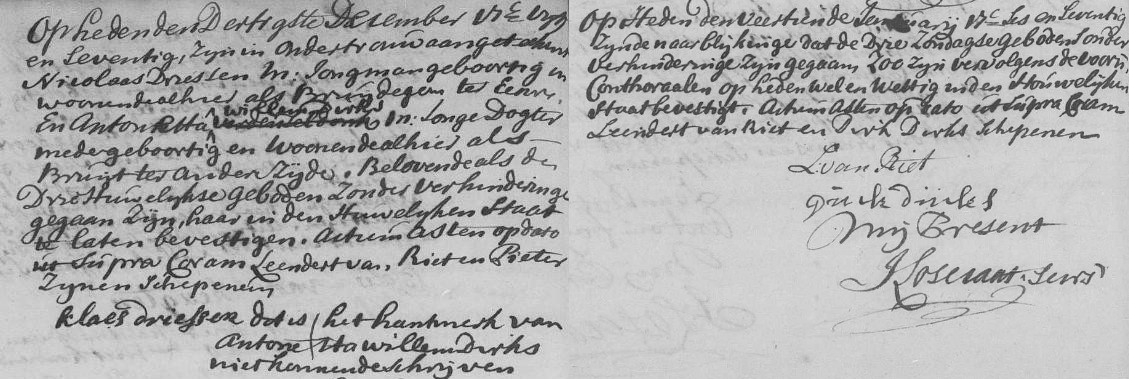 Op heden den Dertigste December 17c vyf
en Seventig, Zyn in ondertrouw aangetekent
Nicolaas Driessen M: Jongman geboortig en
woonende alhier als Bruydegom ter Eenre
En Antonetta willem Dirks M: Jonge Dogter
mede geboortig en Woonende alhier als
Bruyt ter andere Zyde. Belovende als de
Drie Huwelykse Geboden Zonder Verhinderinge
gegaan Zyn, haar in den Huwelyken Staat
te laten bevestigen. Actum Asten op dato
ut Supra Coram Leendert van Riet en Pieter
Zynen Schepenen
klaes driessen dit is het hantmerk van
Antone tta willem Dirks
niet konnende schrijven
Op Heden den Veertiende January 17c Ses en Seventig
Zynde naar blykinge dat de Drie Zondagse geboden Sonder
Verhinderinge Zyn gegaan, Zoo Zyn vervolgens de voorn:
Conthoraalen op heden wel en Wettig in den Houwelyken
Staat bevestigt. Actum Asten op Dato ut Supra Coram
Leendert van Riet en Dirk Dirks Schepenen
L van Riet
Dirk dirks
Mij Present